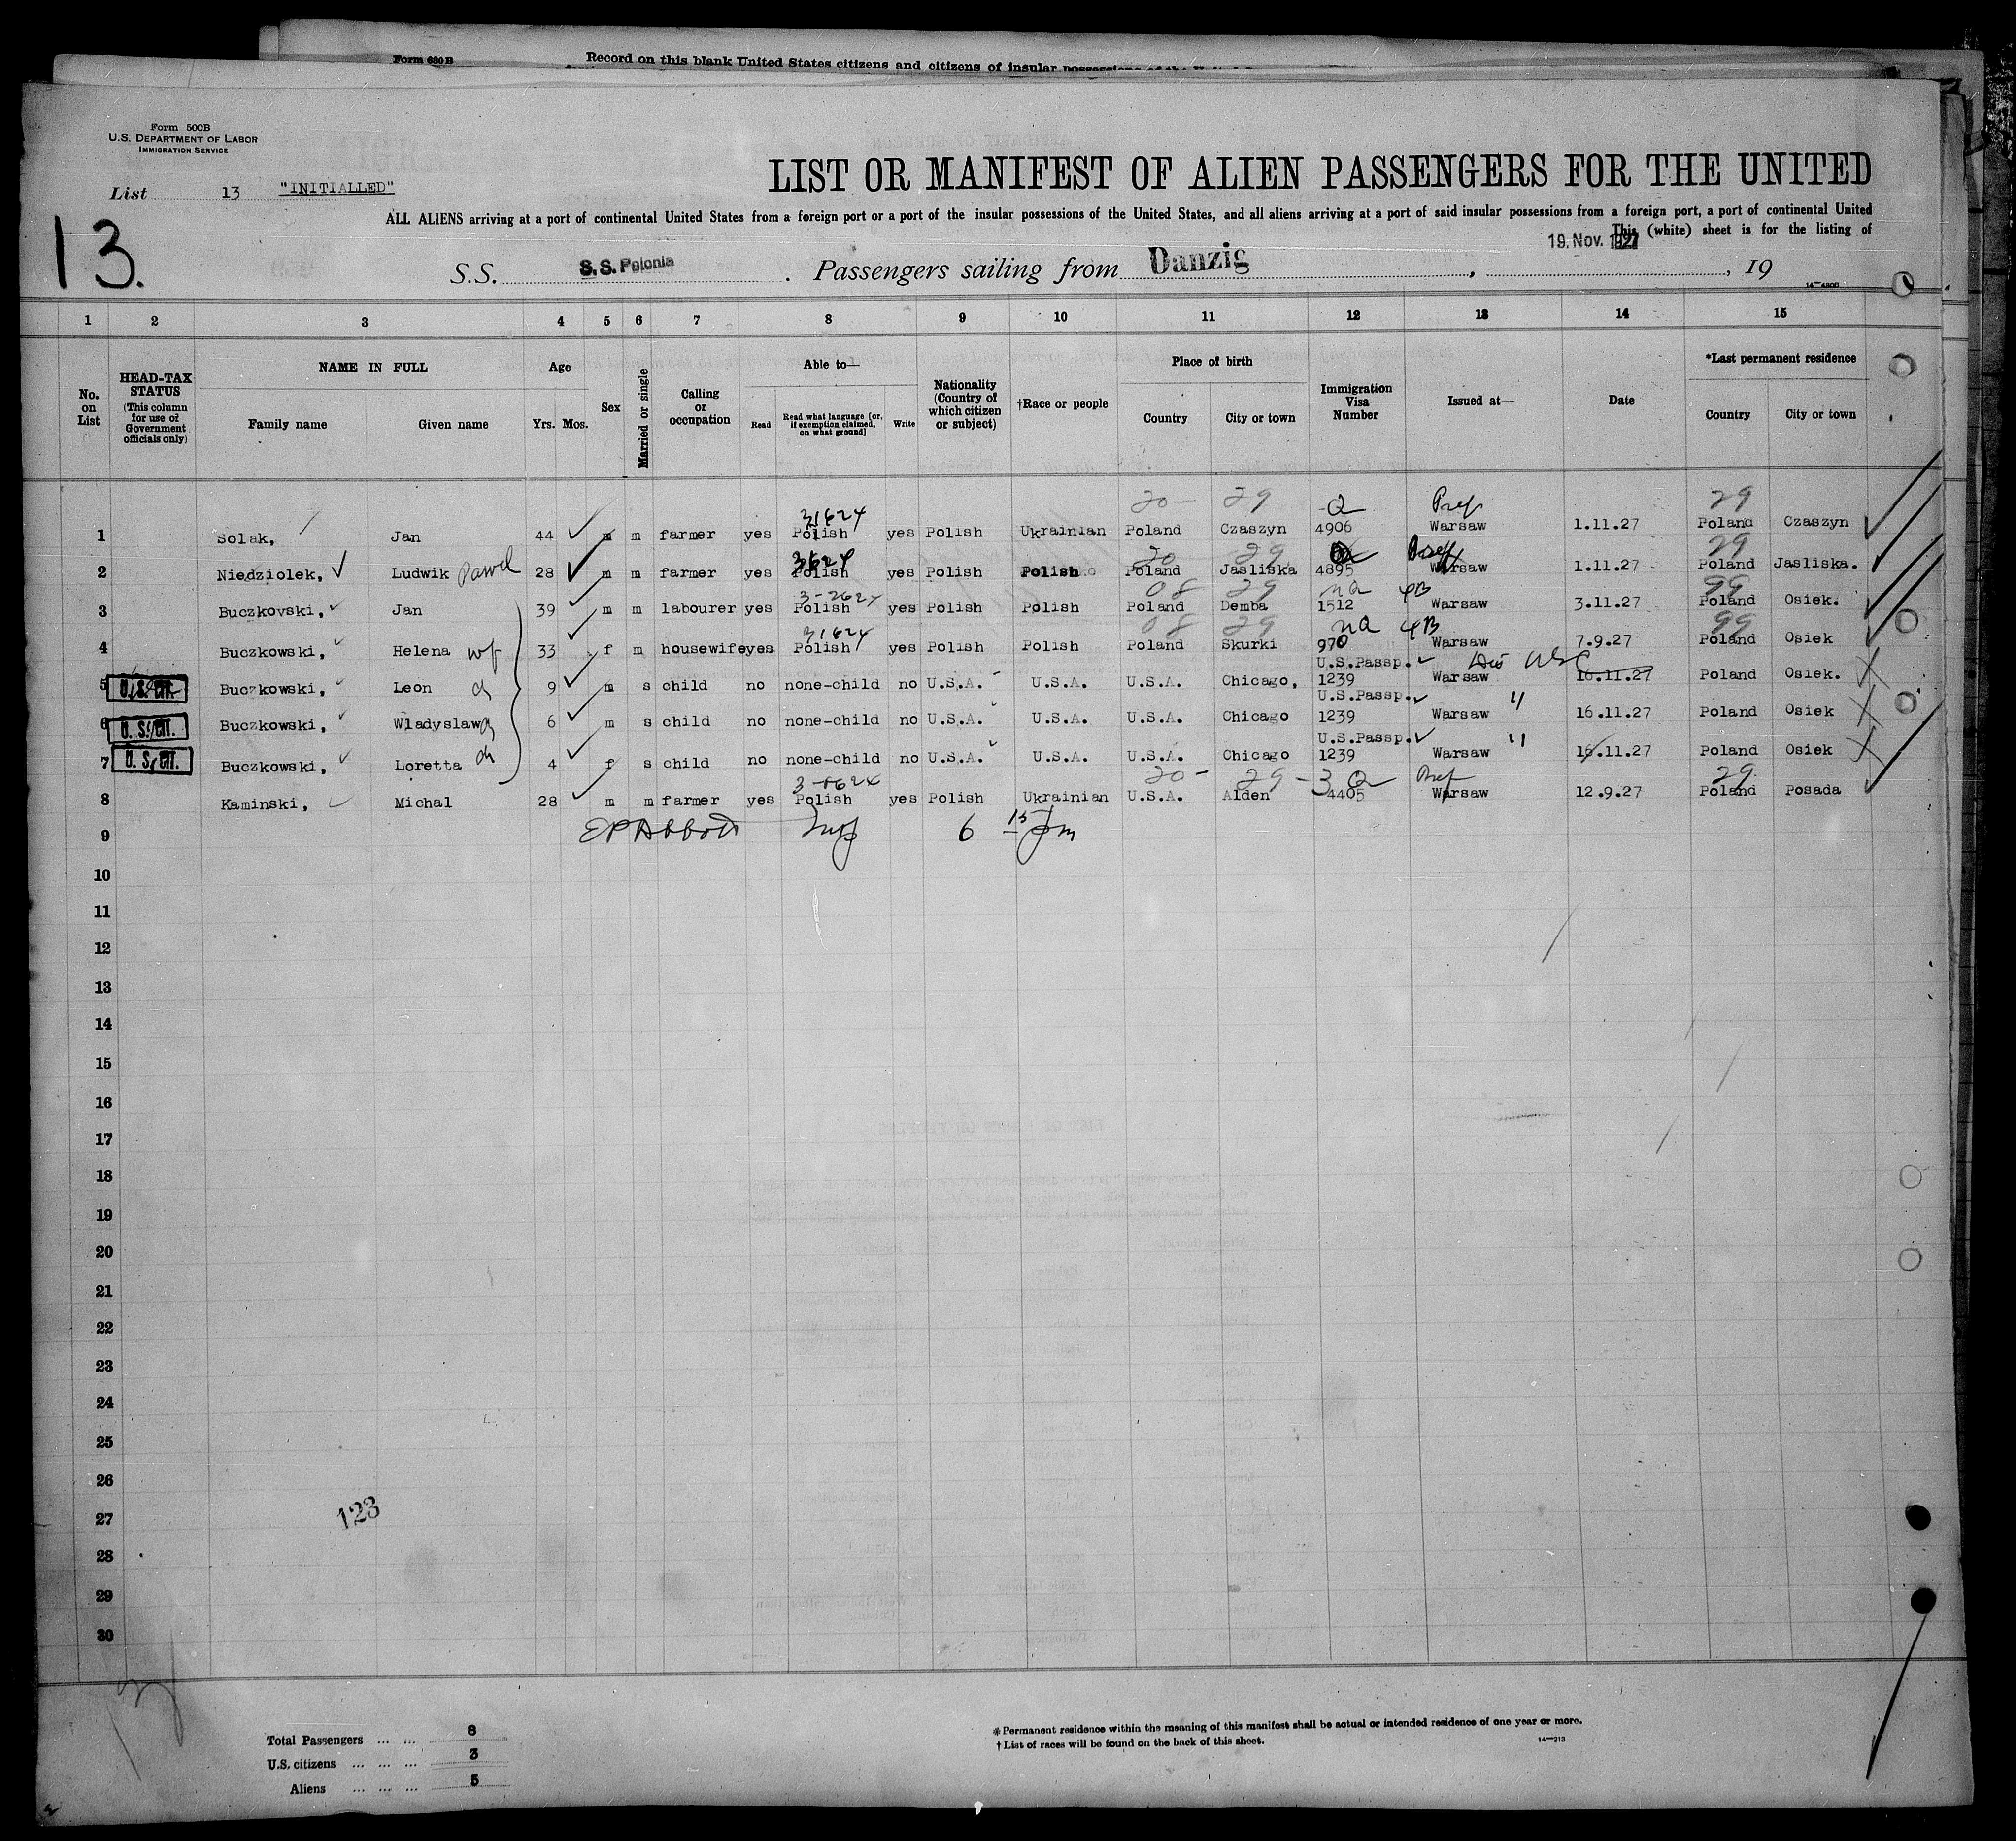 Form 630 B
Record on this blank United States citizens and citizens of insular possessions of the
Form 500B
U.S. DEPARTMENT OF LABOR
IMMIGRATION SERVICE
List 13 "INITIALLED"
13.
LIST OR MANIFEST OF ALIEN PASSENGERS FOR THE UNITED
ALL ALIENS arriving at a port of continental United States from a foreign port or a port of the insular possessions of the United States, and all aliens arriving at a port of said insular possessions from a foreign port, a port of continental United
This (white) sheet is for the listing of
S.S. S.S. Polonia . Passengers sailing from Danzig , 19. Nov. 1927 , 19
1 2 3 4 5 6 7 8 9 10 11 12 13 14 15
No. on List
HEAD-TAX STATUS (This column for use of Government officials only)
NAME IN FULL
Family name Given name
Age
Yrs. Mos.
Sex
Married or single
Calling or occupation
Able to—
Read Read what language [or, if exemption claimed, on what ground] Write
Nationality (Country of which citizen or subject)
†Race or people
Place of birth
Country City or town
Immigration Visa Number
Issued at—
Date
*Last permanent residence
Country City or town
31624 20- 29 Q Pref 29
1 Solak, Jan 44 m m farmer yes Polish yes Polish Ukrainian Poland Czaszyn 4906 Warsaw 1.11.27 Poland Czaszyn
3624 20 29 Q Pref 29
2 Niedziolek, Ludwik Pawel 28 m m farmer yes Polish yes Polish Polish Poland Jasliska 4895 Warsaw 1.11.27 Poland Jasliska.
3-2624 08 29 na 4B 99
3 Buczkovski, Jan 39 m m labourer yes Polish yes Polish Polish Poland Demba 1512 Warsaw 3.11.27 Poland Osiek.
31624 08 29 na 4B 99
4 Buczkowski, Helena wf 33 f m housewife yes Polish yes Polish Polish Poland Skurki 970 Warsaw 7.9.27 Poland Osiek
U.S.Passp.
5 U.S. CIT. Buczkowski, Leon ch 9 m s child no none-child no U.S.A. U.S.A. U.S.A. Chicago, 1239 Warsaw 16.11.27 Poland Osiek.
U.S.Passp. "
6 U.S. CIT. Buczkowski, Wladyslaw ch 6 m s child no none-child no U.S.A. U.S.A. U.S.A. Chicago 1239 Warsaw 16.11.27 Poland Osiek
U.S.Passp. "
7 U.S. CIT. Buczkowski, Loretta ch 4 f s child no none-child no U.S.A. U.S.A. U.S.A. Chicago 1239 Warsaw 16.11.27 Poland Osiek
3-1624 20- 29-3 Q Pref 29
8 Kaminski, Michal 28 m m farmer yes Polish yes Polish Ukrainian U.S.A. Alden 4405 Warsaw 12.9.27 Poland Posada
9 EP Abbott Insp 6 15 pm
10
11
12
13
14
15
16
17
18
19
20
21
22
23
24
25
26
27
123
28
29
30
Total Passengers ... ... 8
U.S. citizens ... ... ... 3
Aliens ... ... ... 5
*Permanent residence within the meaning of this manifest shall be actual or intended residence of one year or more.
†List of races will be found on the back of this sheet.
14—213